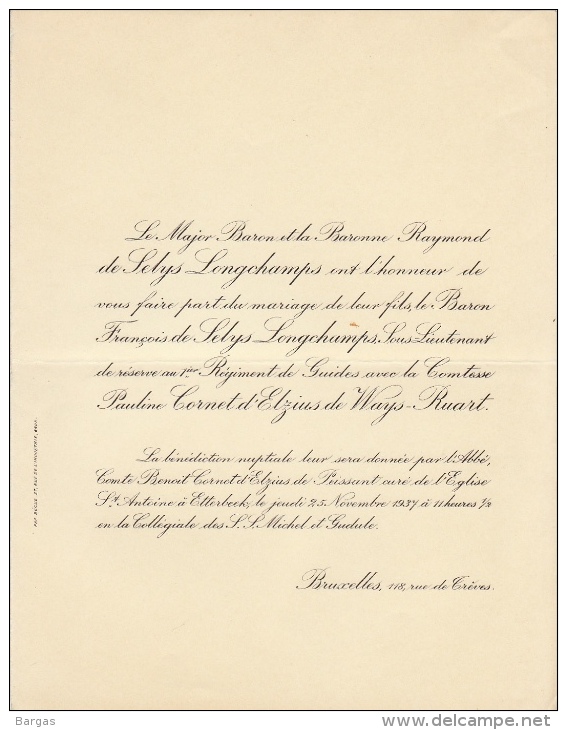 Le Major Baron et la Baronne Raymond
de Selys Longchamps ont l'honneur de
vous faire part du mariage de leur fils, le Baron
François de Selys Longchamps, Sous Lieutenant
de réserve au 1er Régiment de Guides avec la Comtesse
Pauline Cornet d'Elzius de Ways-Ruart.
La bénédiction nuptiale leur sera donnée par l'Abbé,
Comte Benoit Cornet d'Elzius de Peissant curé de l'Eglise
St. Antoine à Etterbeek, le jeudi 25 Novembre 1937 à 11 heures 1/2
en la Collégiale des S.S. Michel et Gudule.
Bruxelles, 118, rue de Trèves.
Bargas
www.delcampe.net